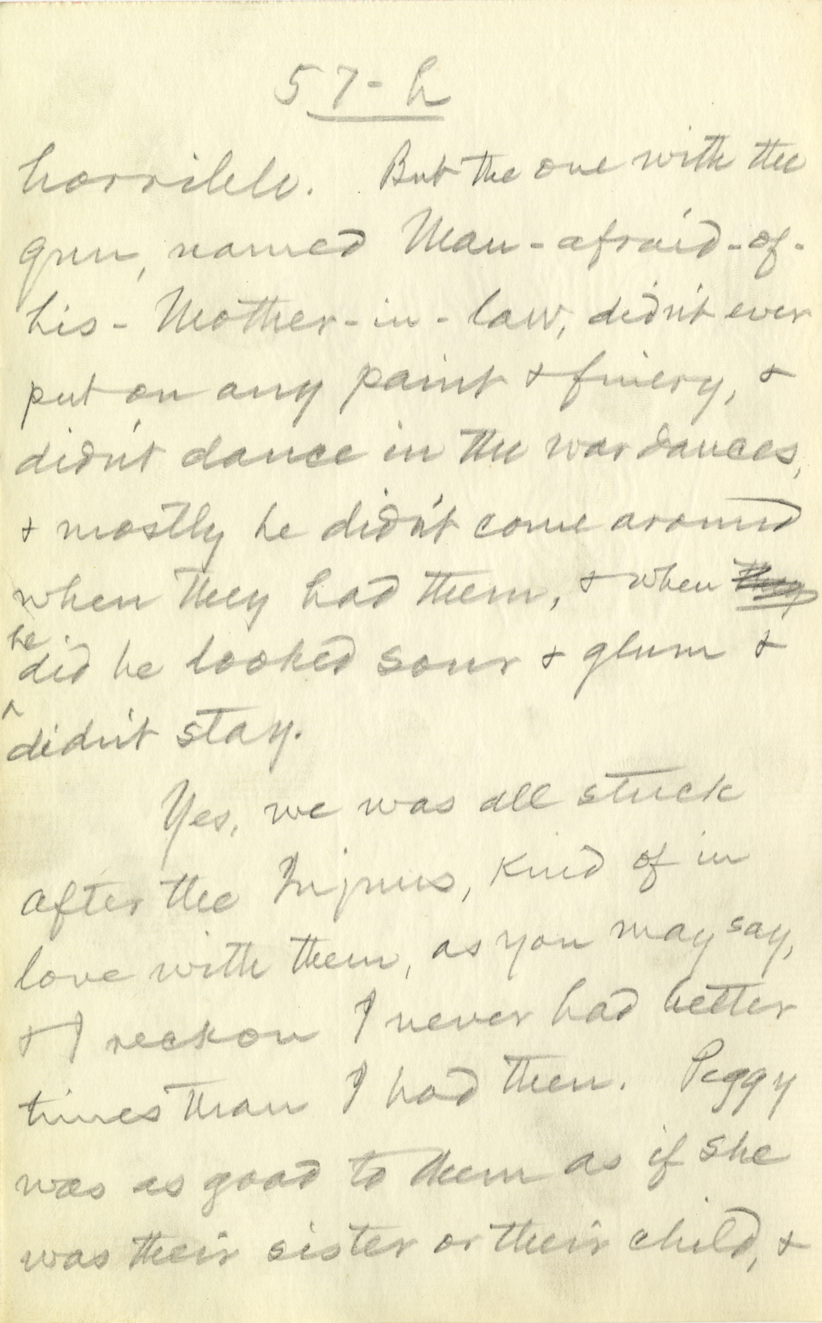 57-h
horrible. But the one with the
gun, named Man-afraid-of-
his-Mother-in-law, didn't ever
put on any paint & finery, &
didn't dance in the war dances,
& mostly he didn't come around
when they had them, & when they
he did he looked sour & glum &
didn't stay.
Yes, we was all stuck
after the Injuns, kind of in
love with them, as you may say,
& I reckon I never had better
times than I had then. Peggy
was as good to them as if she
was their sister or their child, &